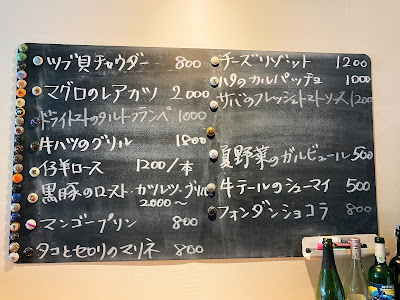 ツブ貝チャウダー 800
マグロのレアカツ 2000
ドライトマトのタルトフランベ 1000
牛ハツのグリル 1800
仔羊ロース 1200/本
黒豚のロースト カツルツ、グリル
2000〜
マンゴープリン 800
タコとセロリのマリネ 800
チーズリゾット 1200
ハタのカルパッチョ 1000
サバのフレッシュトマトソース 1200
夏野菜のガルビュール 500
牛テールのシューマイ 500
フォンダンショコラ 800